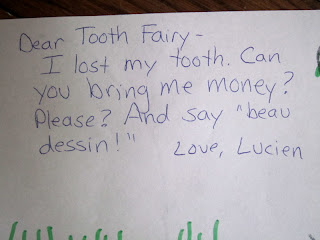 Dear Tooth Fairy-
I lost my tooth. Can
you bring me money?
Please? And say "beau
dessin!" Love, Lucien